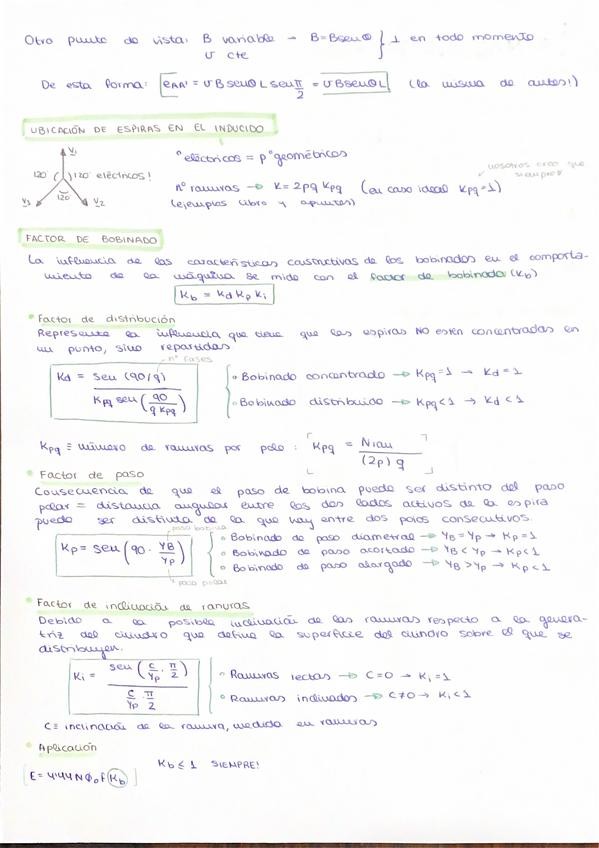 Otro punto de vista: B variable → B = B senθ } ⊥ en todo momento
v cte
De esta forma: e_AA' = v B senθ L sen π/2 = v B senθ L (la misma de antes!)
UBICACIÓN DE ESPIRAS EN EL INDUCIDO
V1
120° 120° eléctricos!
120°
V3 V2
°eléctricos = p °geométricos
nosotros creo que siempre
nº ranuras → K = 2pq Kpq (en caso ideal Kpq = 1)
(ejemplos libro y apuntes)
FACTOR DE BOBINADO
La influencia de las características constructivas de los bobinados en el comporta-
miento de la máquina se mide con el factor de bobinado (Kb)
Kb = Kd Kp Ki
• Factor de distribución
Representa la influencia que tiene que las espiras NO estén concentradas en
un punto, sino repartidas
nº fases
Kd = sen (90/q) / Kpq sen (90 / q Kpq)
• Bobinado concentrado → Kpq = 1 → Kd = 1
• Bobinado distribuido → Kpq < 1 → Kd < 1
Kpq ≡ número de ranuras por polo : Kpq = Nran / (2p) q
• Factor de paso
Consecuencia de que el paso de bobina puede ser distinto del paso
polar = distancia angular entre los dos lados activos de la espira
puede ser distinta de la que hay entre dos polos consecutivos.
paso bobina
Kp = sen (90 · YB / Yp)
paso polar
• Bobinado de paso diametral → YB = Yp → Kp = 1
• Bobinado de paso acortado → YB < Yp → Kp < 1
• Bobinado de paso alargado → YB > Yp → Kp < 1
• Factor de inclinación de ranuras
Debido a la posible inclinación de las ranuras respecto a la genera-
triz del cilindro que define la superficie del cilindro sobre el que se
distribuyen.
Ki = sen (C/Yp · π/2) / C/Yp · π/2
• Ranuras rectas → C = 0 → Ki = 1
• Ranuras inclinadas → C ≠ 0 → Ki < 1
C ≡ inclinación de la ranura, medida en ranuras
• Aplicación
Kb ≤ 1 SIEMPRE!
[E = 4'44 N ϕ0 f Kb]